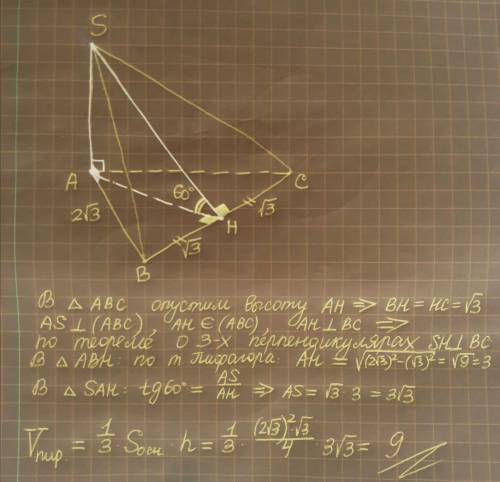 S
A
C
60°
2√3
H
√3
√3
B
В △ ABC опустим высоту AH ⇒ BH = HC = √3
AS ⊥ (ABC), AH ∈ (ABC), AH ⊥ BC ⇒
по теореме о 3-х перпендикулярах SH ⊥ BC
В △ ABH: по т. Пифагора: AH = √((2√3)² - (√3)²) = √9 = 3
В △ SAH: tg60° = AS/AH ⇒ AS = √3 · 3 = 3√3
Vпир. = 1/3 Sосн · h = 1/3 · (2√3)²√3/4 · 3√3 = 9